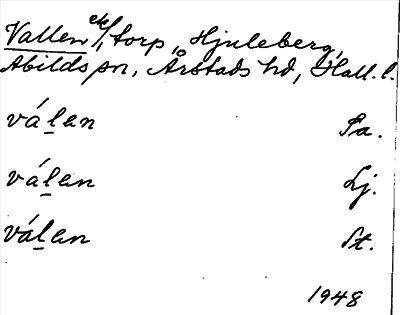 Vallen ek/, torp, Hjuleberg,
Abilds sn, Årstads hd, Hall. l.
válan Sa.
válan Lj.
válan St.
1948